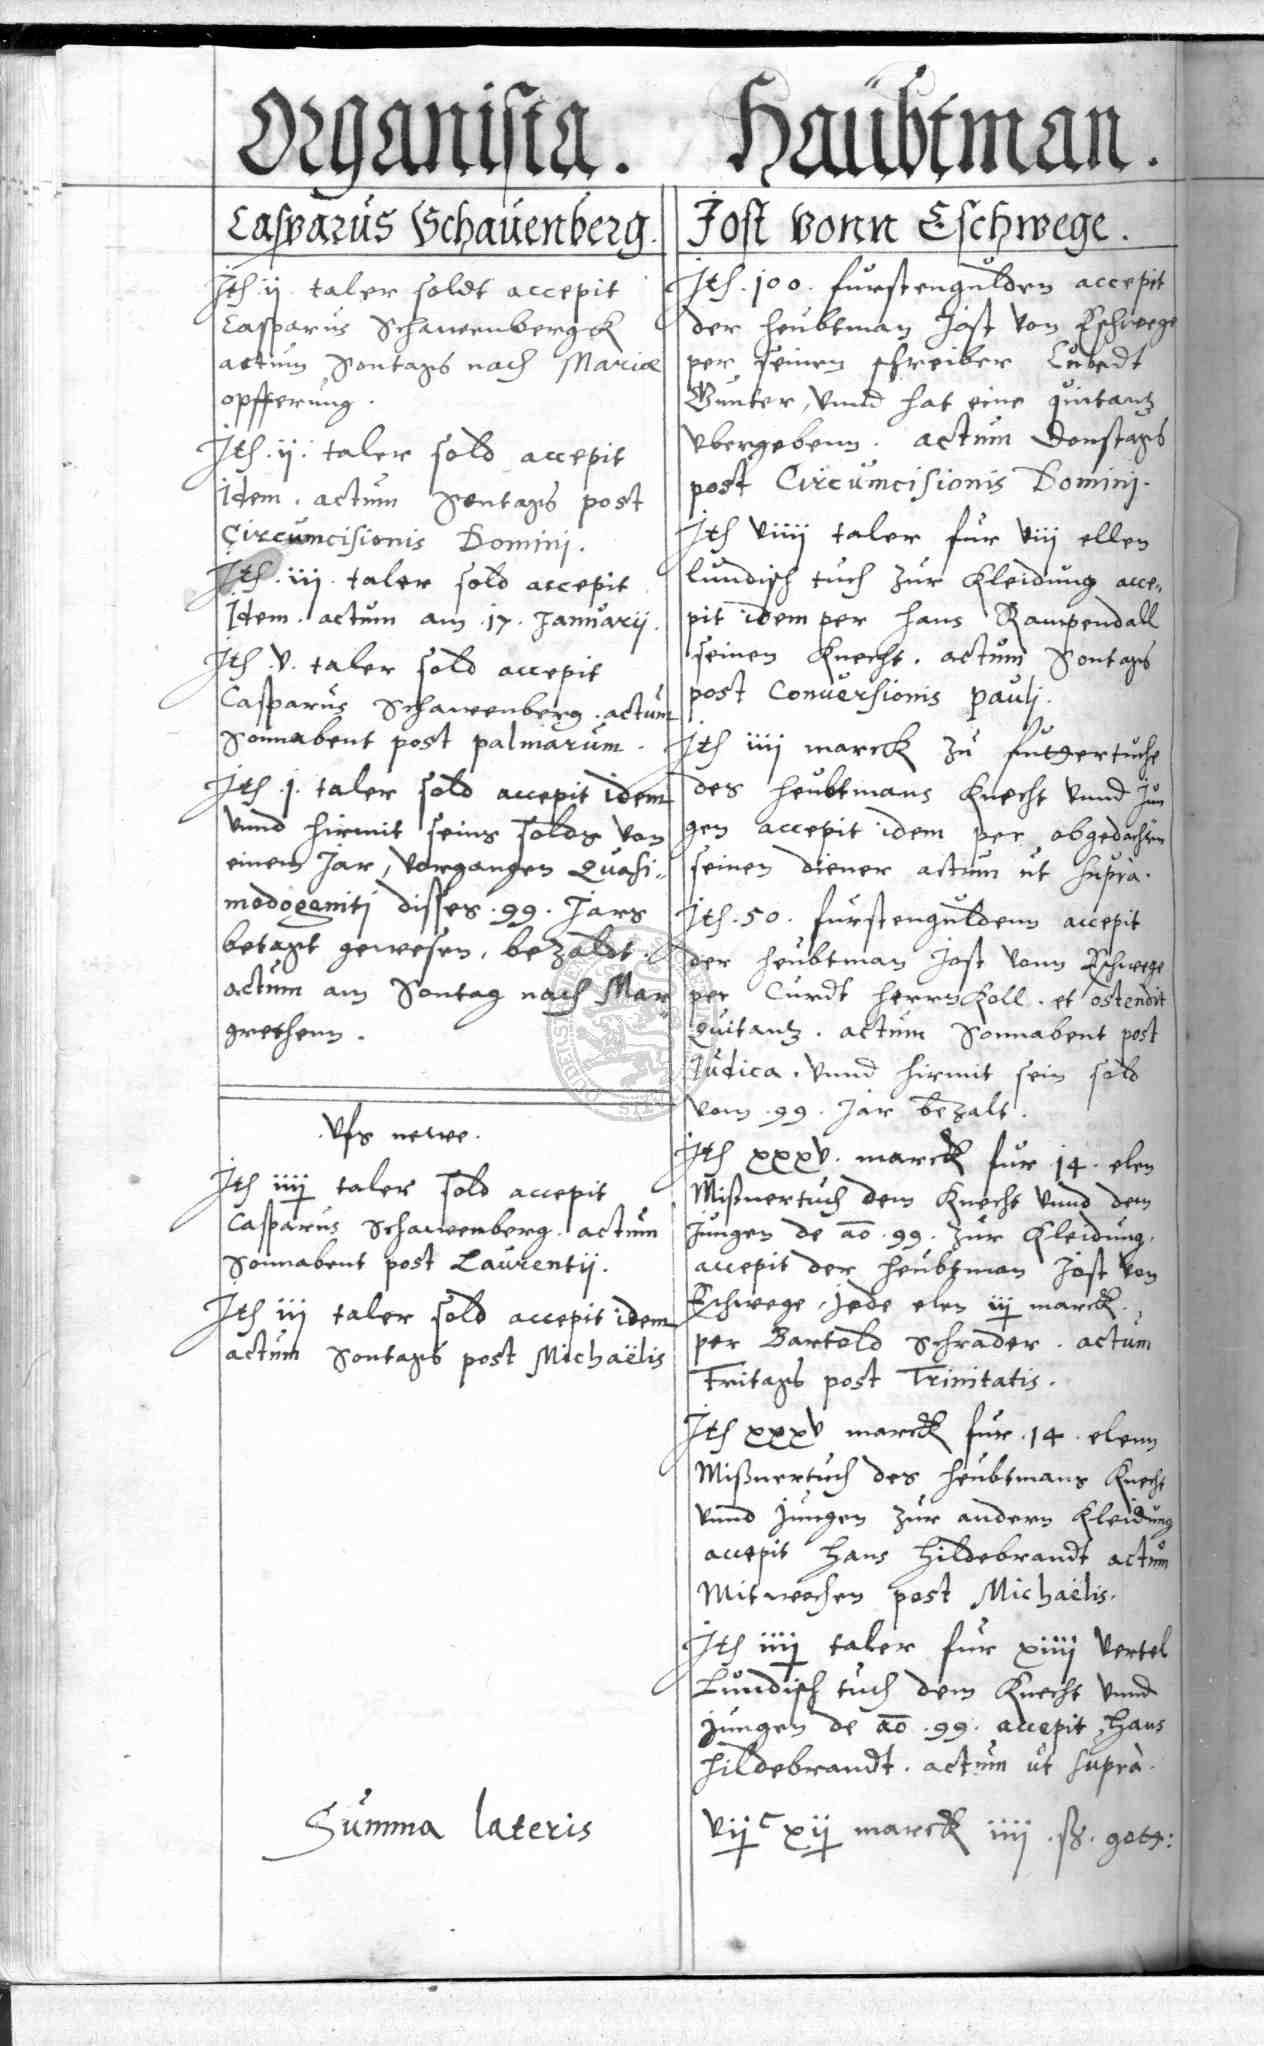 Organista.
Casparus Schauenberg.
Ith ij taler soldt accepit
Casparus Schauuenbergk
actum Sontags nach Mariæ
opfferung.
Ith. ij. taler sold accepit
Idem. actum Sontags post
Circumcisionis Domini.
Ith. iij. taler sold accepit
Idem. actum am .17. Januarij.
Ith. v. taler sold accepit
Casparus Schauuenberg. actum
Sonnabent post palmarum.
Ith. j. taler sold accepit idem
vnnd hirmit seins solds von
einem Jar, vorgangen Quasi-
modogeniti disses .99. Jars
betagt gewesen, bezaldt.
actum am Sontag nach Mar-
grethenn.
Vfs newe.
Ith iiij taler sold accepit
Casparus Schauuenberg. actum
Sonnabent post Laurentij.
Ith iij taler sold accepit idem
actum Sontags post Michaëlis
Haubtman.
Jost vonn Eschwege.
Ith. 100. furstengulden accepit
der heubtman Jost von Eschwege
per seinen schreiber
Gunter, vnnd hat eine quitantz
vbergebenn. actum Donstags
post Circumcisionis Domini.
Ith viiij taler fur viij ellen
lundisch tuch zur Kleidung acce-
pit idem per hans Rampendall
seinen Knecht. actum Sontags
post Conversionis pauli.
Ith iiij marck zu futhertuche
des heubtmans Knecht vnnd Jun
gen accepit idem per obgedachten
seinen diener actum ut supra.
Ith. 50. furstenguldenn accepit
der heubtman Jost vonn Eschwege
per Curdt herrnKoll. et ostendit
quitantz. actum Sonnabent post
Judica, vnnd hirmit sein sold
vom .99. Jar bezalt.
Ith xxxv. marck fur .14. elen
Mißnertuch dem Knecht vnnd dem
Jungen de ao .99. zur Kleidung,
accepit der heubtman Jost von
Eschwege, jede elen iij marck.
per Bartold Schrader. actum
Fritags post Trinitatis.
Ith xxxv marck fur .14. elenn
Mißnertuch des heubtmans Knecht
vnnd Jungen zur andern Kleidung
accepit Hans Hildebrandt actum
Mitwochen post Michaëlis.
Ith iiij taler fur xiiij vertel
Lundisch tuch dem Knecht vnnd
Jungen de ao .99. accepit, Hans
Hildebrandt. actum ut supra.
Summa lateris
vij c xij marck iiij ß. gott: